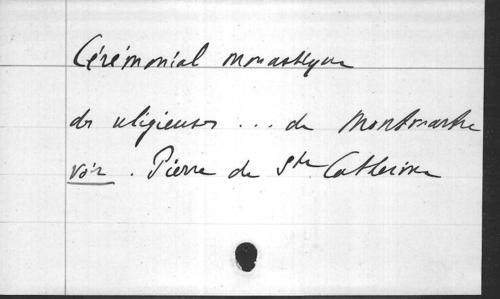 Cérémonial monastique
des religieuses ... de Montmartre
voir. Pierre de Ste Catherine